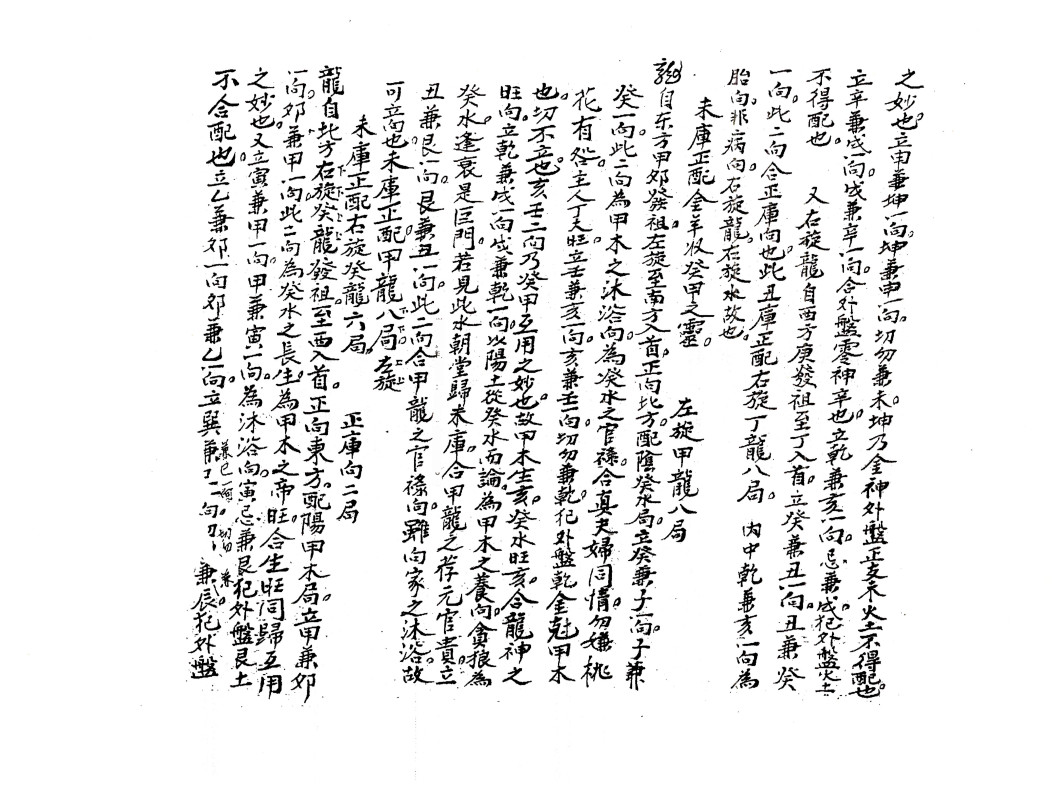 之妙也。立申兼坤一向。坤兼申一向。切勿兼未。坤乃金神外盤正支禾火土不得配也。
立辛兼戌一向。戌兼辛一向。合外盤零神辛也。立乾兼亥一向。忌兼戌。犯外盤火土
不得配也　又右旋龍自西方庚發祖至丁入首。立癸兼丑一向。丑兼癸
一向。此二向合正庫向也。此丑庫正配右旋丁龍八局。　內中乾兼亥一向為
胎向。非病向。右旋龍。右旋水故也。
未庫正配金羊收癸甲之靈。　左旋甲龍八局
龍自东方甲夘發祖。左旋至南方入首。正向北方。配陰癸水局。立癸兼子一向。子兼
癸一向。此二向為甲木之沐浴向。為癸水之官祿。合真夫婦同情。勿嫌桃
花有咎。主人丁大旺。立壬兼亥一向。亥兼壬一向。切勿兼乾。犯外盤乾金尅甲木
也。切不立也。亥壬二向乃癸甲互用之妙也。故甲木生亥。癸水旺亥。合龍神之
旺向。立乾兼戌一向。戌兼乾一向。以陽土從癸水而論。為甲木之養向。貪狼為
癸水逢衰是巨門。若見此水朝堂歸未庫。合甲龍之荐元官貴。立
丑兼艮一向。艮兼丑一向。此二向合甲龍之官祿向。雖向家之沐浴。故
可立向也。未庫正配甲龍八局　左旋
未庫正配右旋癸龍六局。　正庫向二局
龍自北方右旋癸龍發祖至西入首。正向東方。配陽甲木局。立甲兼夘
一向。夘兼甲一向。此二向為癸水之長生。為甲木之帝旺。合生旺同歸互用
之妙也。又立寅兼甲一向。甲兼寅一向。為沐浴向。寅忌兼艮。犯外盤艮土
不合配也。立乙兼夘一向。夘兼乙一向。立巽兼巳一向。切勿兼辰。犯外盤